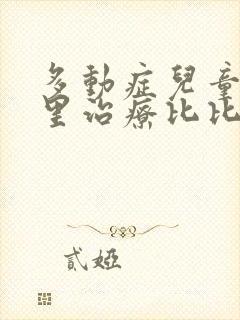 多動症兒童
里治療比比
貳婭